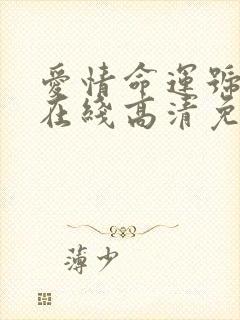 愛情命運號
在綫高清免
薄少